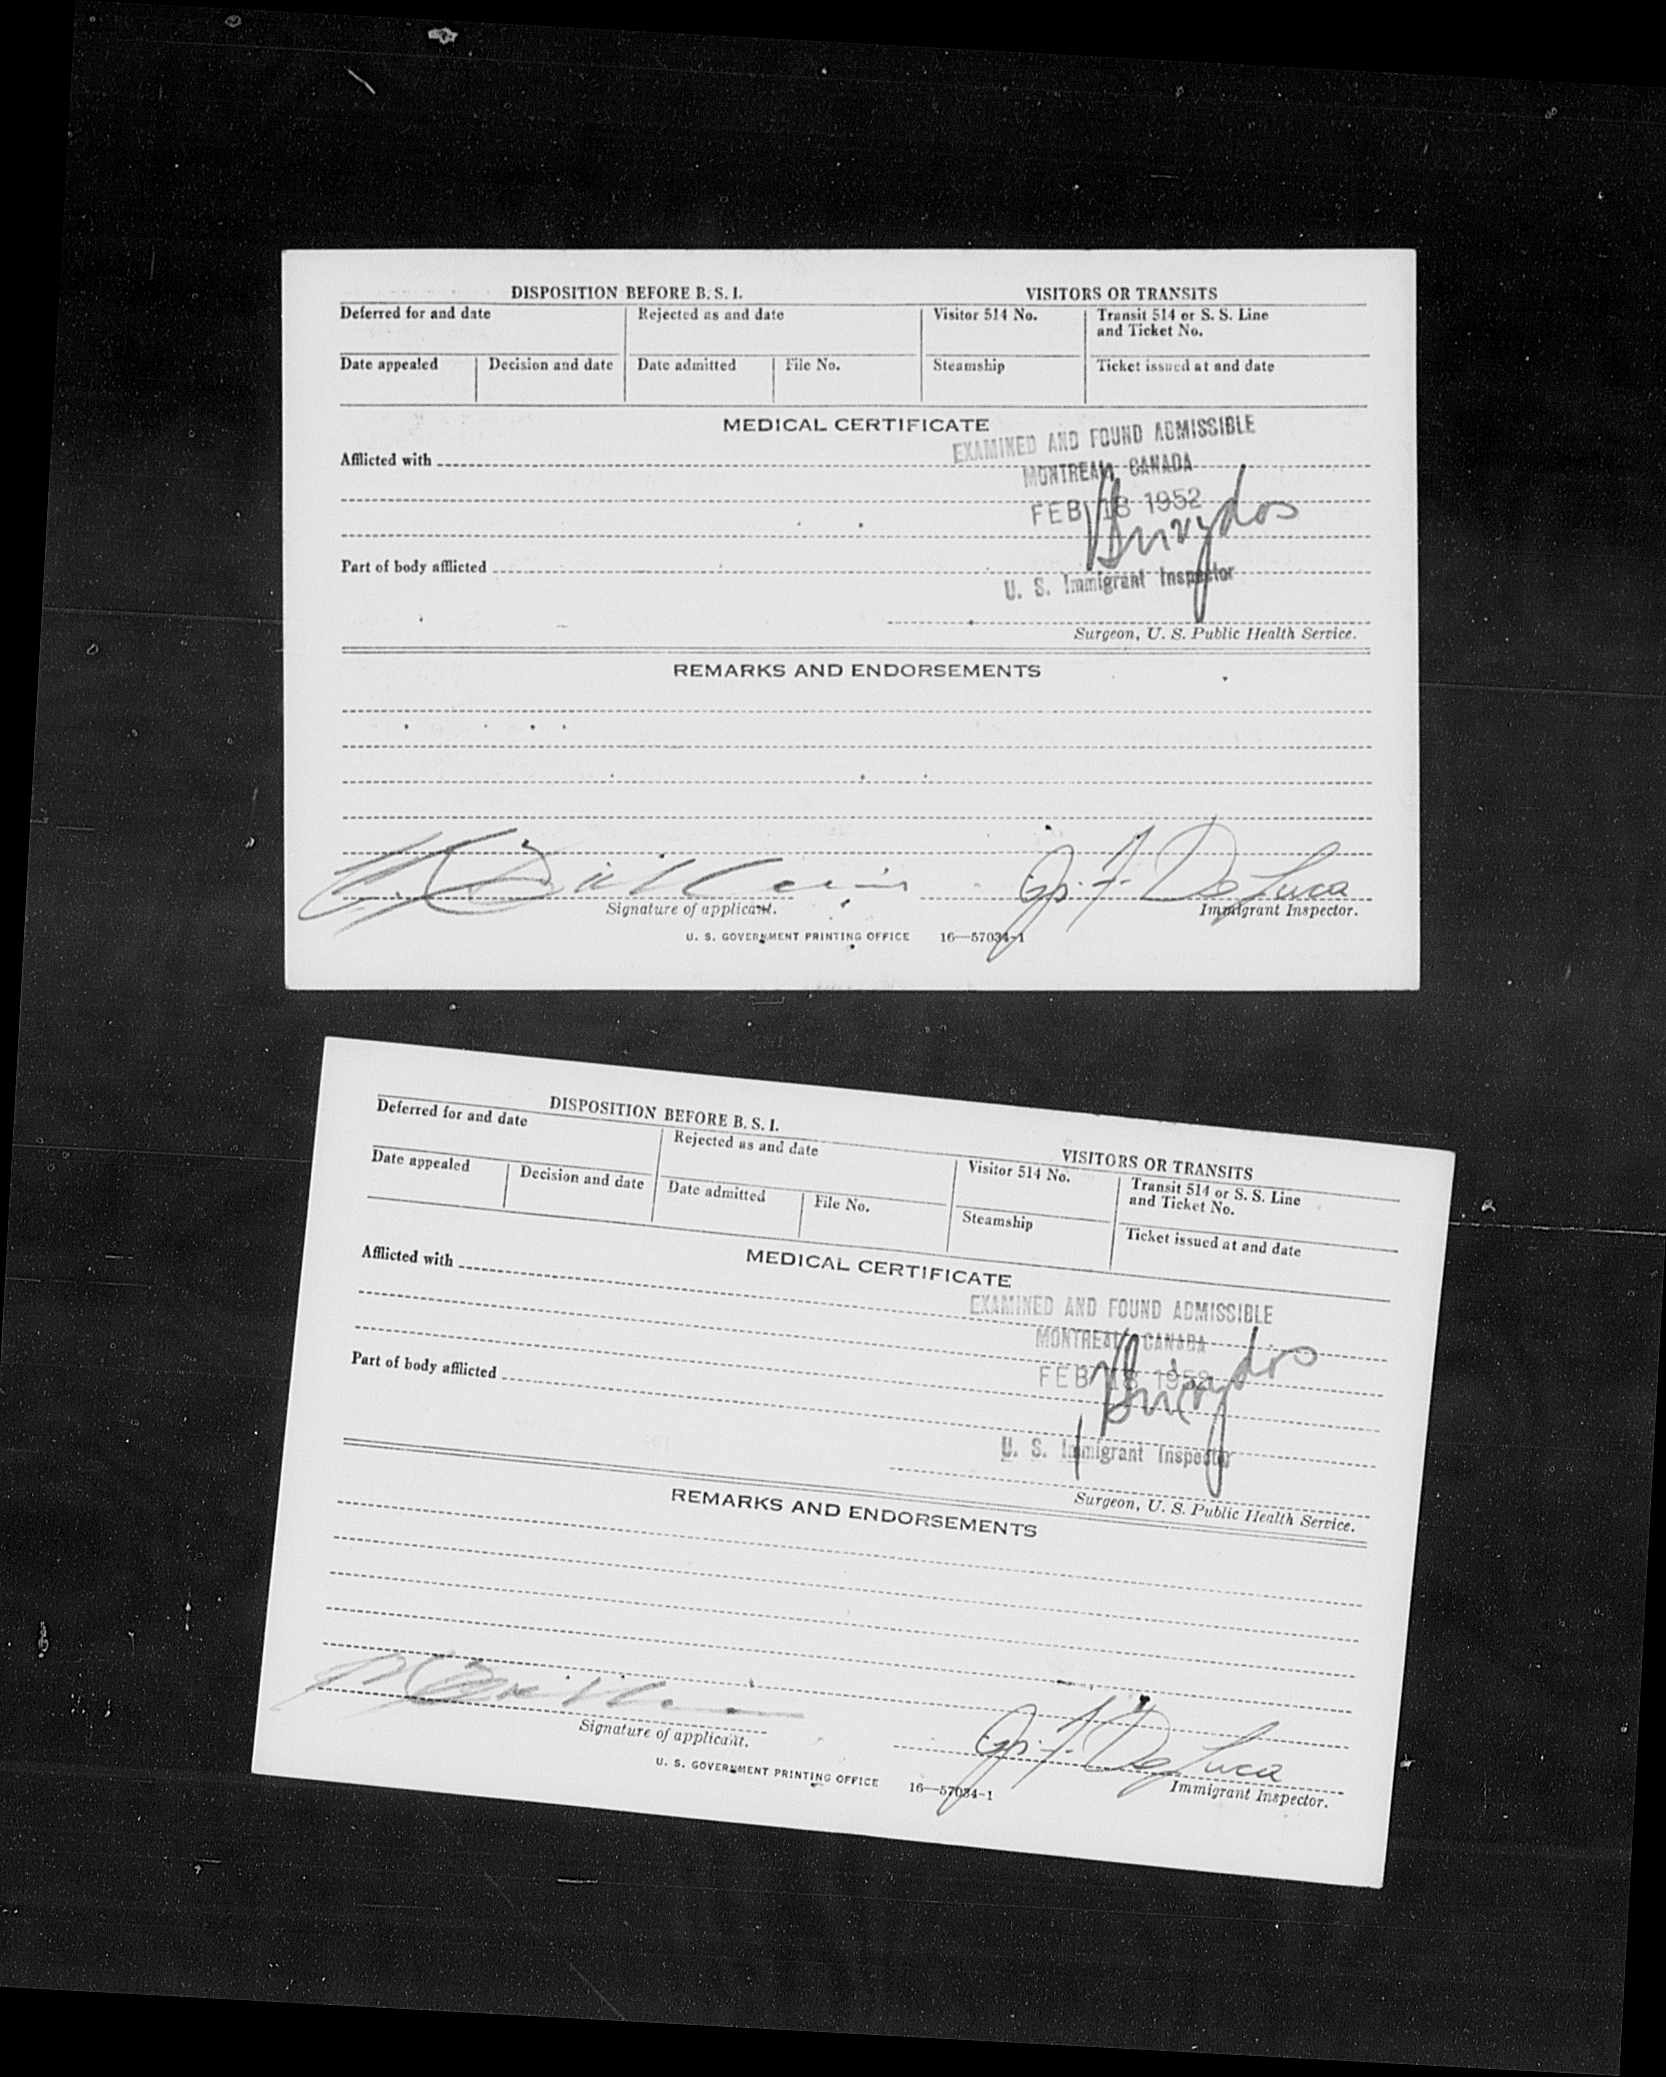 DISPOSITION BEFORE B. S. I.
VISITORS OR TRANSITS
Deferred for and date
Rejected as and date
Visitor 514 No.
Transit 514 or S. S. Line
and Ticket No.
Date appealed
Decision and date
Date admitted
File No.
Steamship
Ticket issued at and date
MEDICAL CERTIFICATE
EXAMINED AND FOUND ADMISSIBLE
Afflicted with
MONTREAL, CANADA
FEB 18 1952
Part of body afflicted
U. S. Immigrant Inspector
Surgeon, U. S. Public Health Service.
REMARKS AND ENDORSEMENTS
De Luca
Signature of applicant.
Immigrant Inspector.
U. S. GOVERNMENT PRINTING OFFICE 16—57034-1
DISPOSITION BEFORE B. S. I.
VISITORS OR TRANSITS
Deferred for and date
Rejected as and date
Visitor 514 No.
Transit 514 or S. S. Line
and Ticket No.
Date appealed
Decision and date
Date admitted
File No.
Steamship
Ticket issued at and date
MEDICAL CERTIFICATE
Afflicted with
EXAMINED AND FOUND ADMISSIBLE
MONTREAL, CANADA
FEB 18 1952
Part of body afflicted
U. S. Immigrant Inspector
Surgeon, U. S. Public Health Service.
REMARKS AND ENDORSEMENTS
De Luca
Signature of applicant.
Immigrant Inspector.
U. S. GOVERNMENT PRINTING OFFICE 16—57034-1